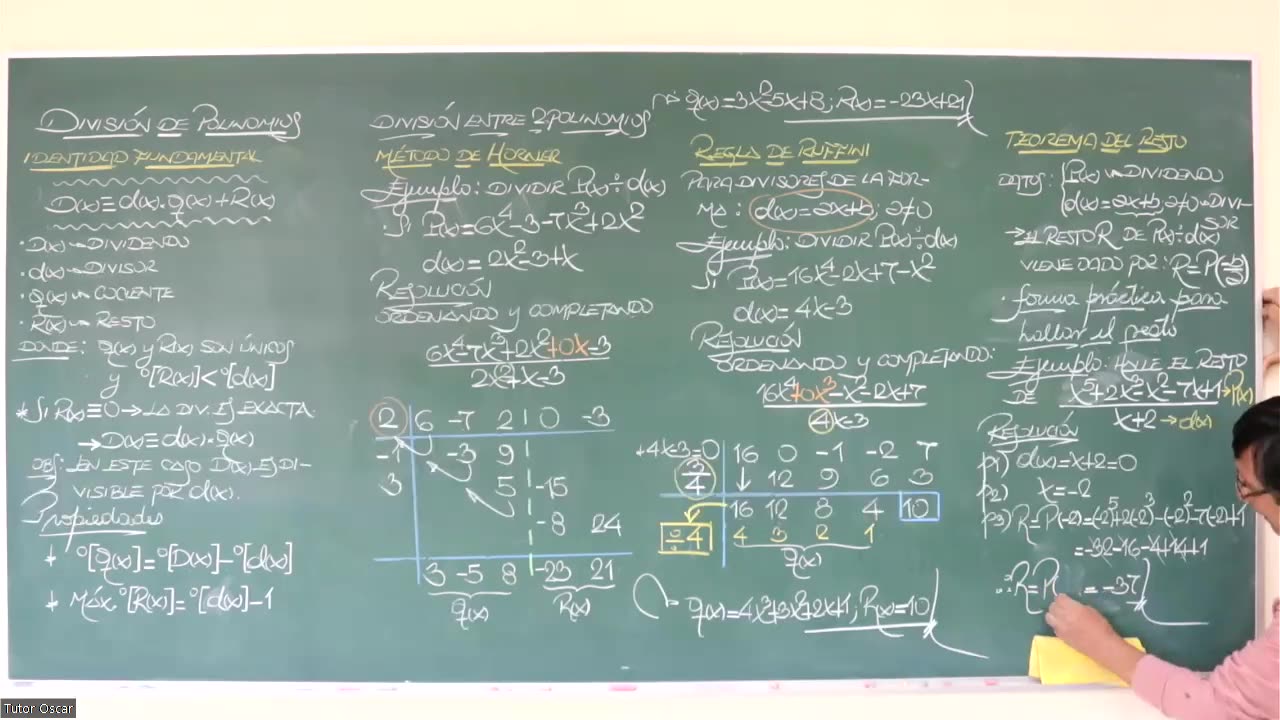 DIVISIÓN DE POLINOMIOS
IDENTIDAD FUNDAMENTAL
D(x)≡d(x)·q(x)+R(x)
· D(x) → DIVIDENDO
· d(x) → DIVISOR
· q(x) → COCIENTE
· R(x) → RESTO
DONDE: q(x) y R(x) SON ÚNICOS
y °[R(x)]<°[d(x)]
* Si R(x)≡0 → LA DIV. ES EXACTA.
→ D(x)≡d(x)·q(x)
OBS: EN ESTE CASO D(x) ES DI-
VISIBLE POR d(x).
Propiedades
+ °[q(x)]=°[D(x)]-°[d(x)]
+ MÁX.°[R(x)]=°[d(x)]-1
DIVISIÓN ENTRE 2 POLINOMIOS
MÉTODO DE HORNER
Ejemplo: DIVIDIR P(x)÷d(x)
· Si P(x)=6x⁴-3-7x³+2x²
d(x)=2x²-3+x
RESOLUCIÓN
ORDENANDO y COMPLETANDO
6x⁴-7x³+2x²+0x-3
2x²+x-3
2 6 -7 2 0 -3
-1 -3 9
3 5 -15
-8 24
3 -5 8 -23 21
q(x) R(x)
∴ q(x)=3x²-5x+8; R(x)=-23x+21
REGLA DE RUFFINI
PARA DIVISORES DE LA FOR-
MA: d(x)=ax+b; a≠0
Ejemplo: DIVIDIR P(x)÷d(x)
Si P(x)=16x⁴-2x+7-x²
d(x)=4x-3
RESOLUCIÓN
ORDENANDO y COMPLETANDO:
16x⁴+0x³-x²-2x+7
4x-3
+4x-3=0 16 0 -1 -2 7
3/4 ↓ 12 9 6 3
16 12 8 4 10
÷4 4 3 2 1
q(x)
q(x)=4x³+3x²+2x+1; R(x)=10
TEOREMA DEL RESTO
DATOS: P(x) → DIVIDENDO
d(x)=ax+b, a≠0 → DIVI-
SOR
→ EL RESTO R DE P(x)÷d(x)
VIENE DADO POR: R=P(-b/a)
· forma práctica para
hallar el resto
Ejemplo: HALLE EL RESTO
DE x⁵+2x³-x²-7x+1 → P(x)
x+2 → d(x)
RESOLUCIÓN
p1) d(x)=x+2=0
p2) x=-2
p3) R=P(-2)=(-2)⁵+2(-2)³-(-2)²-7(-2)+1
=-32-16-4+14+1
∴ R=P( =-37
Tutor Oscar